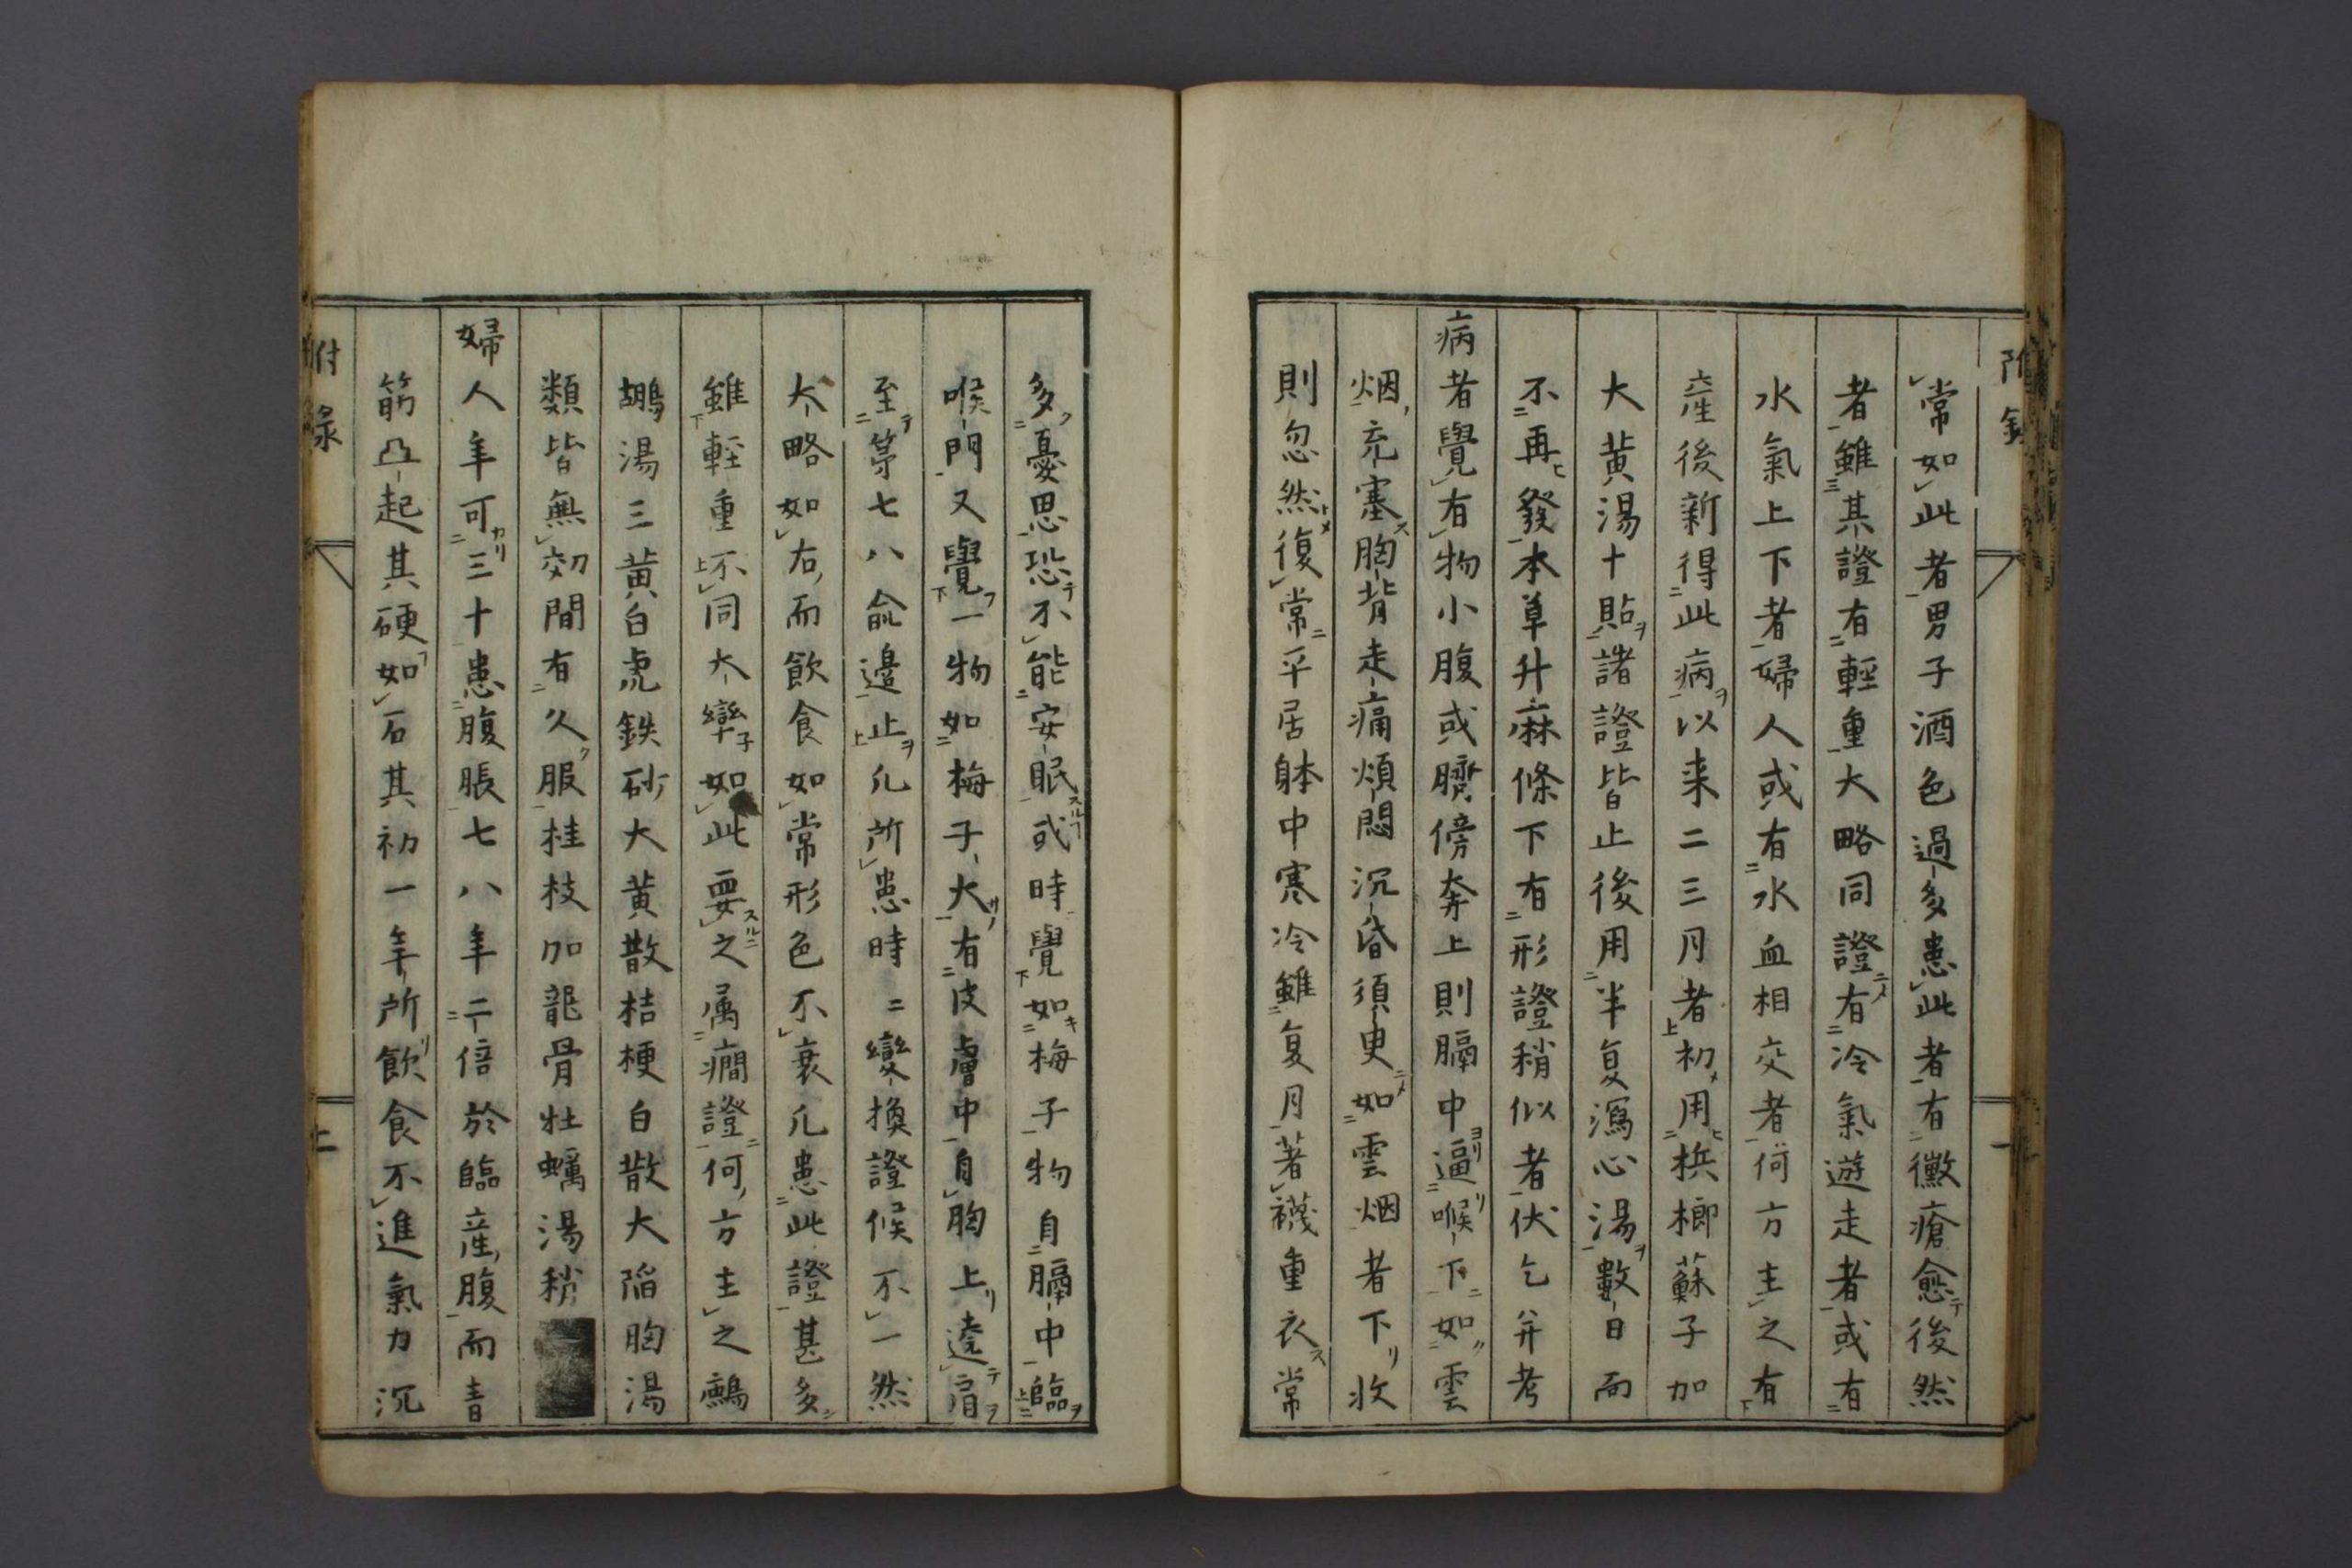 附録
常如此者男子酒色過多患此者有黴瘡愈後然
者雖其證有輕重大略同證有冷氣遊走者或有
水氣上下者婦人或有水血相交者何方主之有
産後新得此病以来二三月者初用梹榔蘇子加
大黄湯十貼諸證皆止後用半夏瀉心湯數日而
不再發本草升麻條下有形證稍似者伏乞并考
病者覺有物小腹或臍傍奔上則膈中逼喉下如雲
烟充塞胸背走痛煩悶沉昏須臾如雲烟者下收
則忽然復常平居躰中寒冷雖夏月著襪重衣常
多憂思恐不能安眠或時覺如梅子物自膈中臨
喉門又覺一物如梅子大有皮膚中自胸上遶肩
至第七八俞邉止凡所患時二變換證候不一然
大略如右而飲食如常形色不衰凡患此證甚多
雖輕重不同大率如此要之属癇證何方主之鷓
鶘湯三黄白虎鉄砂大黄散桔梗白散大陥胸湯
類皆無効間有久服桂枝加龍骨牡蠣湯稍
婦人年可三十患腹脹七八年二倍於臨産腹而青
筋凸起其硬如石其初一年所飲食不進氣力沉
附録
上